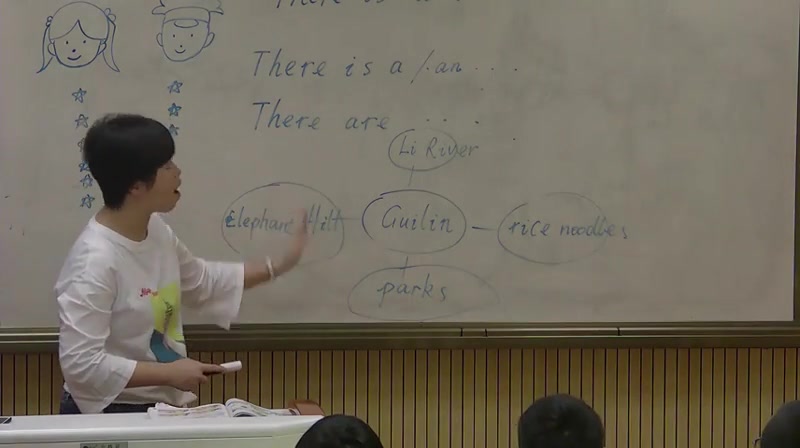 There is a
There is a /an ....
There are ....
Li River
Elephant Hill
Guilin
rice noodles
parks